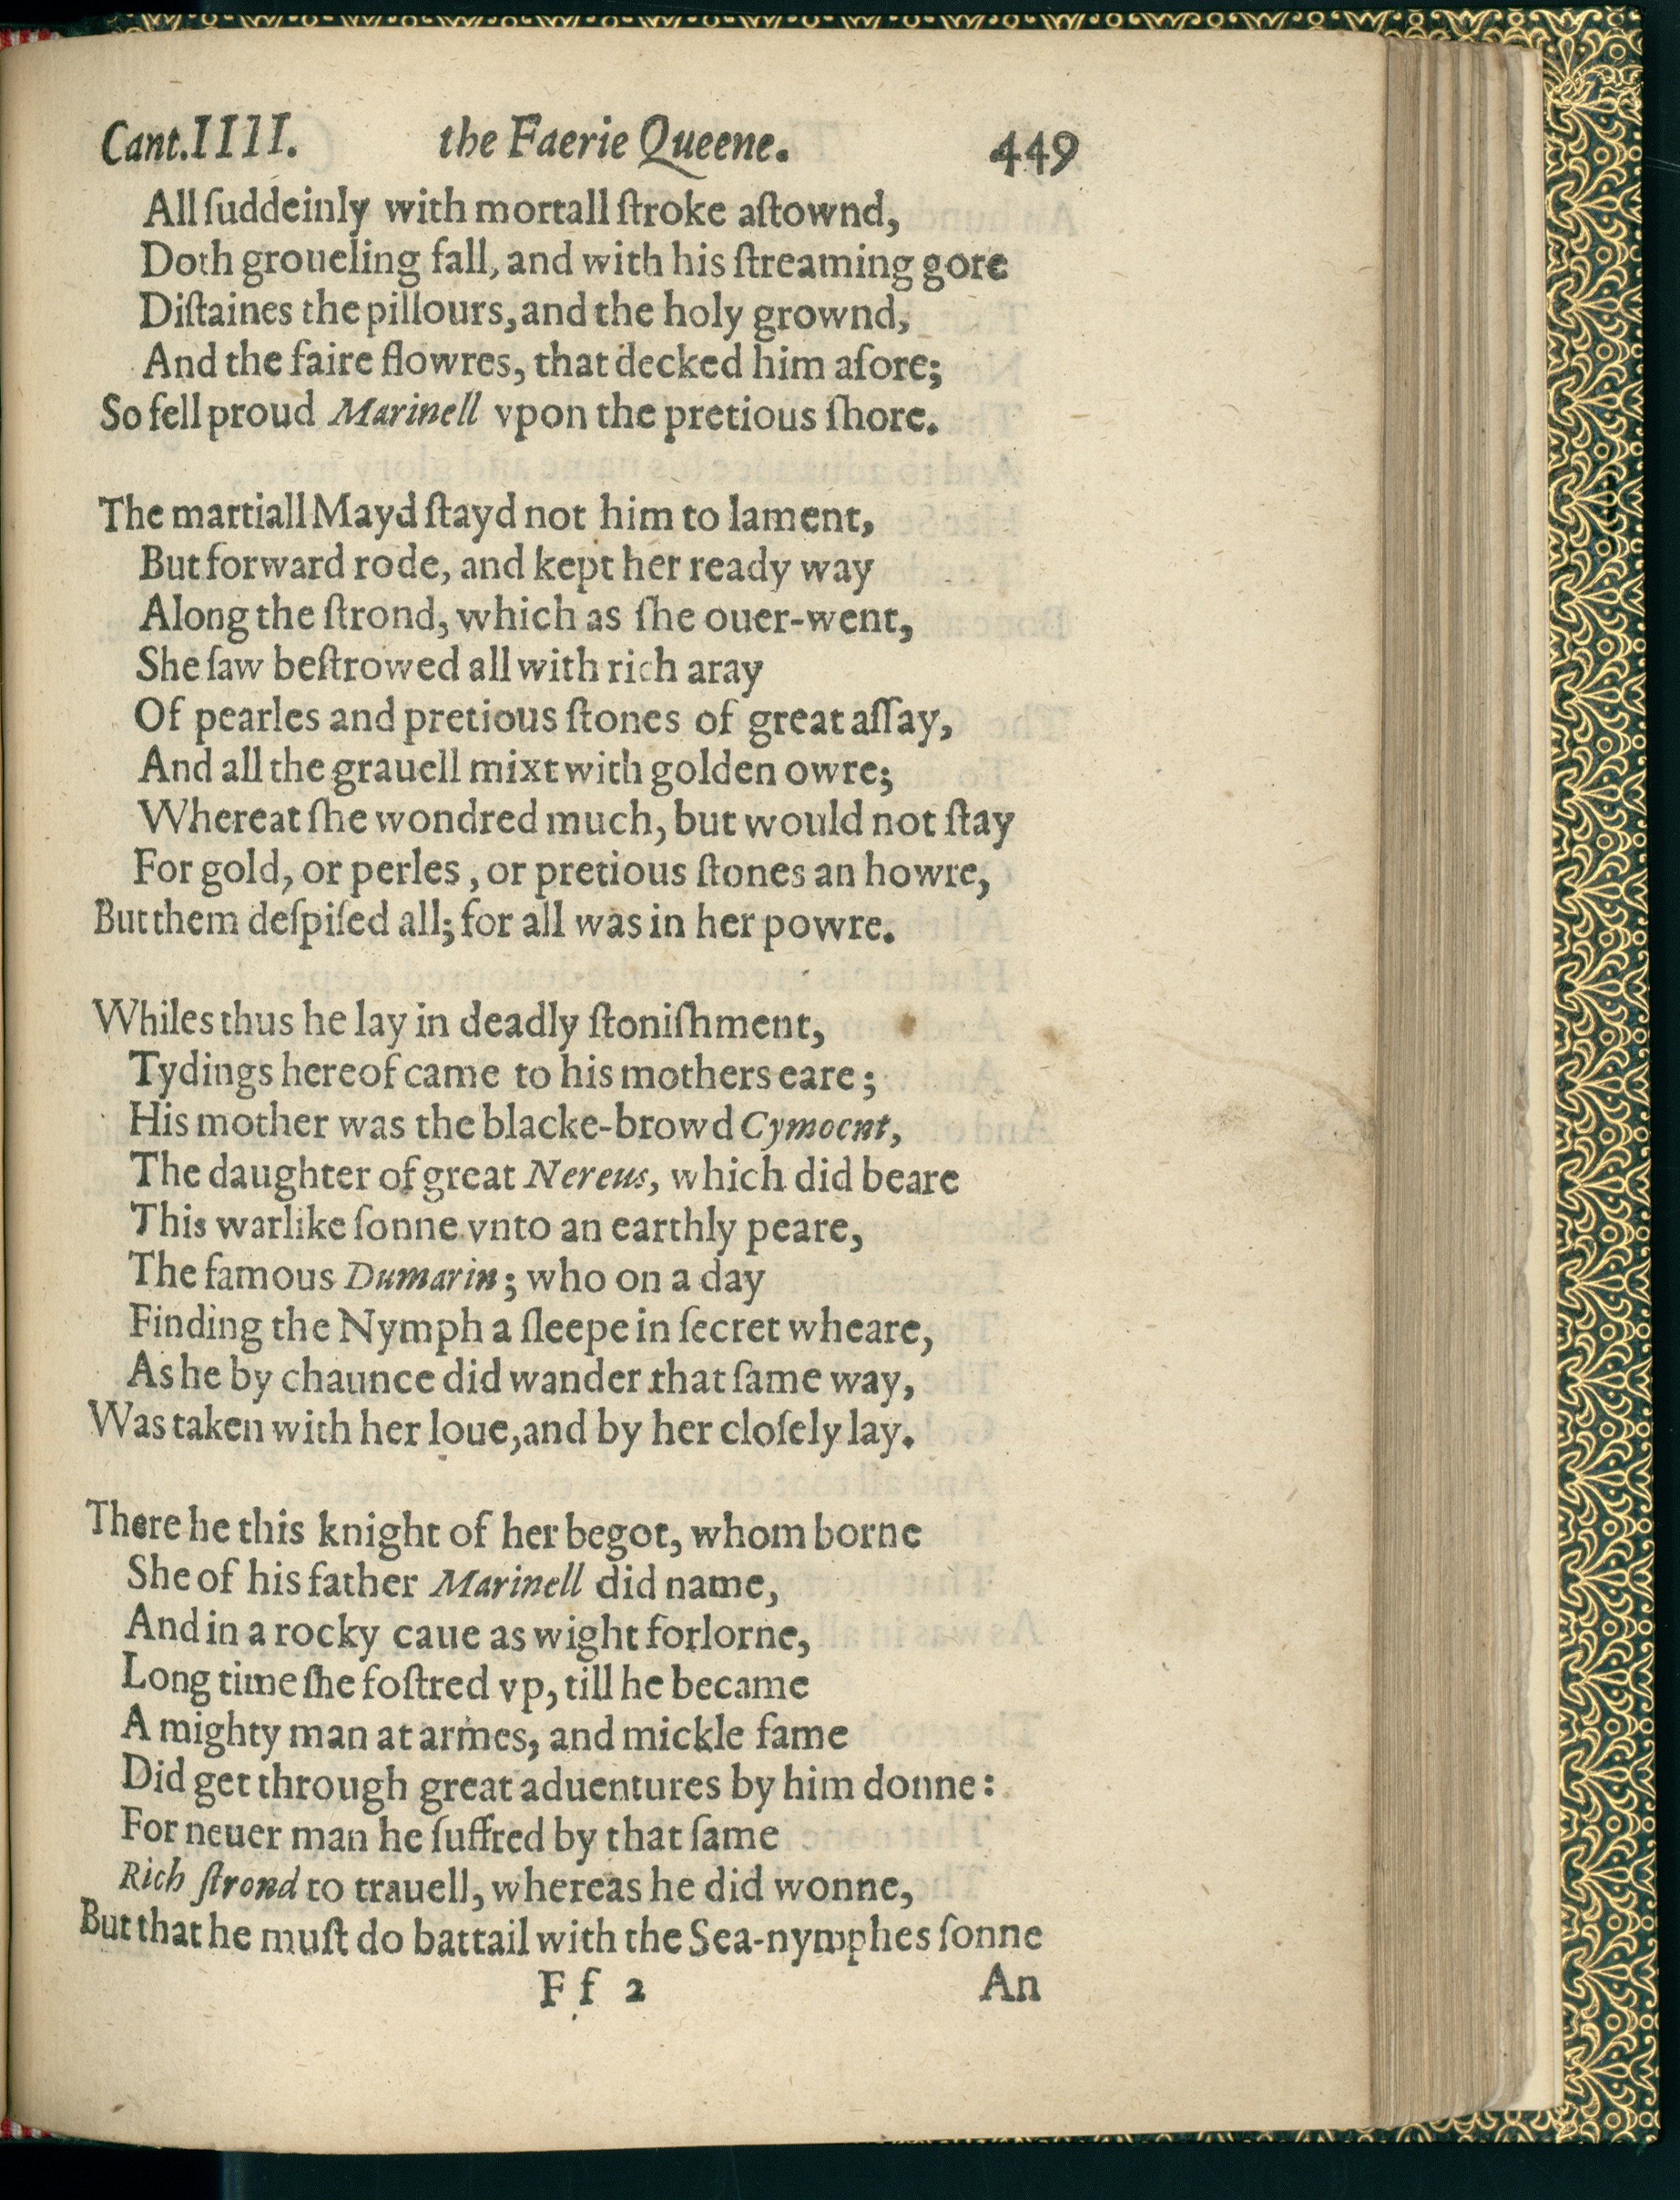 Cant.IIII. the Faerie Queene. 449
All ſuddeinly with mortall ſtroke aſtownd,
Doth groueling fall, and with his ſtreaming gore
Diſtaines the pillours, and the holy grownd,
And the faire flowres, that decked him afore;
So fell proud Marinell vpon the pretious ſhore.
The martiall Mayd ſtayd not him to lament,
But forward rode, and kept her ready way
Along the ſtrond, which as ſhe ouer-went,
She ſaw beſtrowed all with rich aray
Of pearles and pretious ſtones of great aſſay,
And all the grauell mixt with golden owre;
Whereat ſhe wondred much, but would not ſtay
For gold, or perles, or pretious ſtones an howre,
But them deſpiſed all; for all was in her powre.
Whiles thus he lay in deadly ſtoniſhment,
Tydings hereof came to his mothers eare;
His mother was the blacke-browd Cymoent,
The daughter of great Nereus, which did beare
This warlike ſonne vnto an earthly peare,
The famous Dumarin; who on a day
Finding the Nymph a ſleepe in ſecret wheare,
As he by chaunce did wander that ſame way,
Was taken with her loue, and by her cloſely lay.
There he this knight of her begot, whom borne
She of his father Marinell did name,
And in a rocky caue as wight forlorne,
Long time ſhe foſtred vp, till he became
A mighty man at armes, and mickle fame
Did get through great aduentures by him donne:
For neuer man he ſuffred by that ſame
Rich ſtrond to trauell, whereas he did wonne,
But that he muſt do battail with the Sea-nymphes ſonne
Ff 2 An